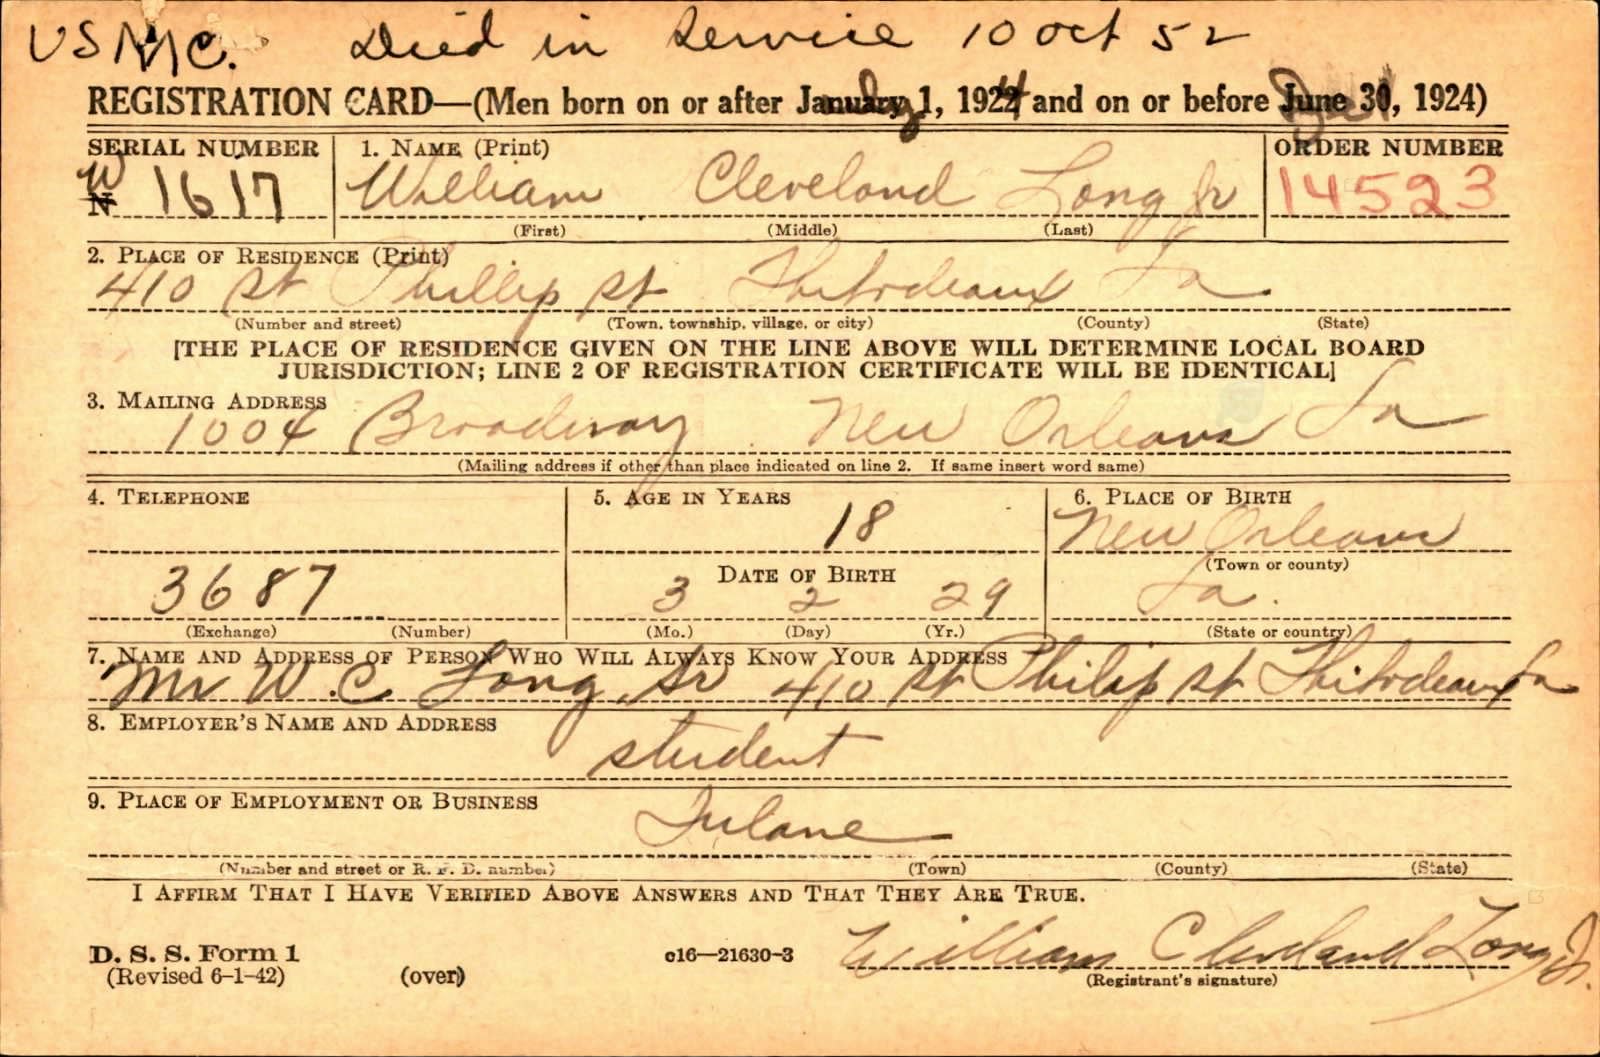 USMC. Died in Service 10 Oct 52
REGISTRATION CARD—(Men born on or after July 1, 1924 and on or before Dec 31, 1924)
SERIAL NUMBER 1. NAME (Print) ORDER NUMBER
W 1617 William Cleveland Long Jr 14523
(First) (Middle) (Last)
2. PLACE OF RESIDENCE (Print)
410 St Phillip St Thibodeaux La
(Number and street) (Town, township, village, or city) (County) (State)
[THE PLACE OF RESIDENCE GIVEN ON THE LINE ABOVE WILL DETERMINE LOCAL BOARD
JURISDICTION; LINE 2 OF REGISTRATION CERTIFICATE WILL BE IDENTICAL]
3. MAILING ADDRESS
1004 Broadway New Orleans La
(Mailing address if other than place indicated on line 2. If same insert word same)
4. TELEPHONE 5. AGE IN YEARS 6. PLACE OF BIRTH
18 New Orleans
DATE OF BIRTH (Town or county)
3687 3 2 29 La.
(Exchange) (Number) (Mo.) (Day) (Yr.) (State or country)
7. NAME AND ADDRESS OF PERSON WHO WILL ALWAYS KNOW YOUR ADDRESS
Mr W.C Long Sr 410 St Philip St Thibodeaux La
8. EMPLOYER'S NAME AND ADDRESS
student
9. PLACE OF EMPLOYMENT OR BUSINESS
Tulane
(Number and street or R. F. D. number) (Town) (County) (State)
I AFFIRM THAT I HAVE VERIFIED ABOVE ANSWERS AND THAT THEY ARE TRUE.
William Cleveland Long Jr.
D. S. S. Form 1 c16—21630-3
(Revised 6-1-42) (over) (Registrant's signature)